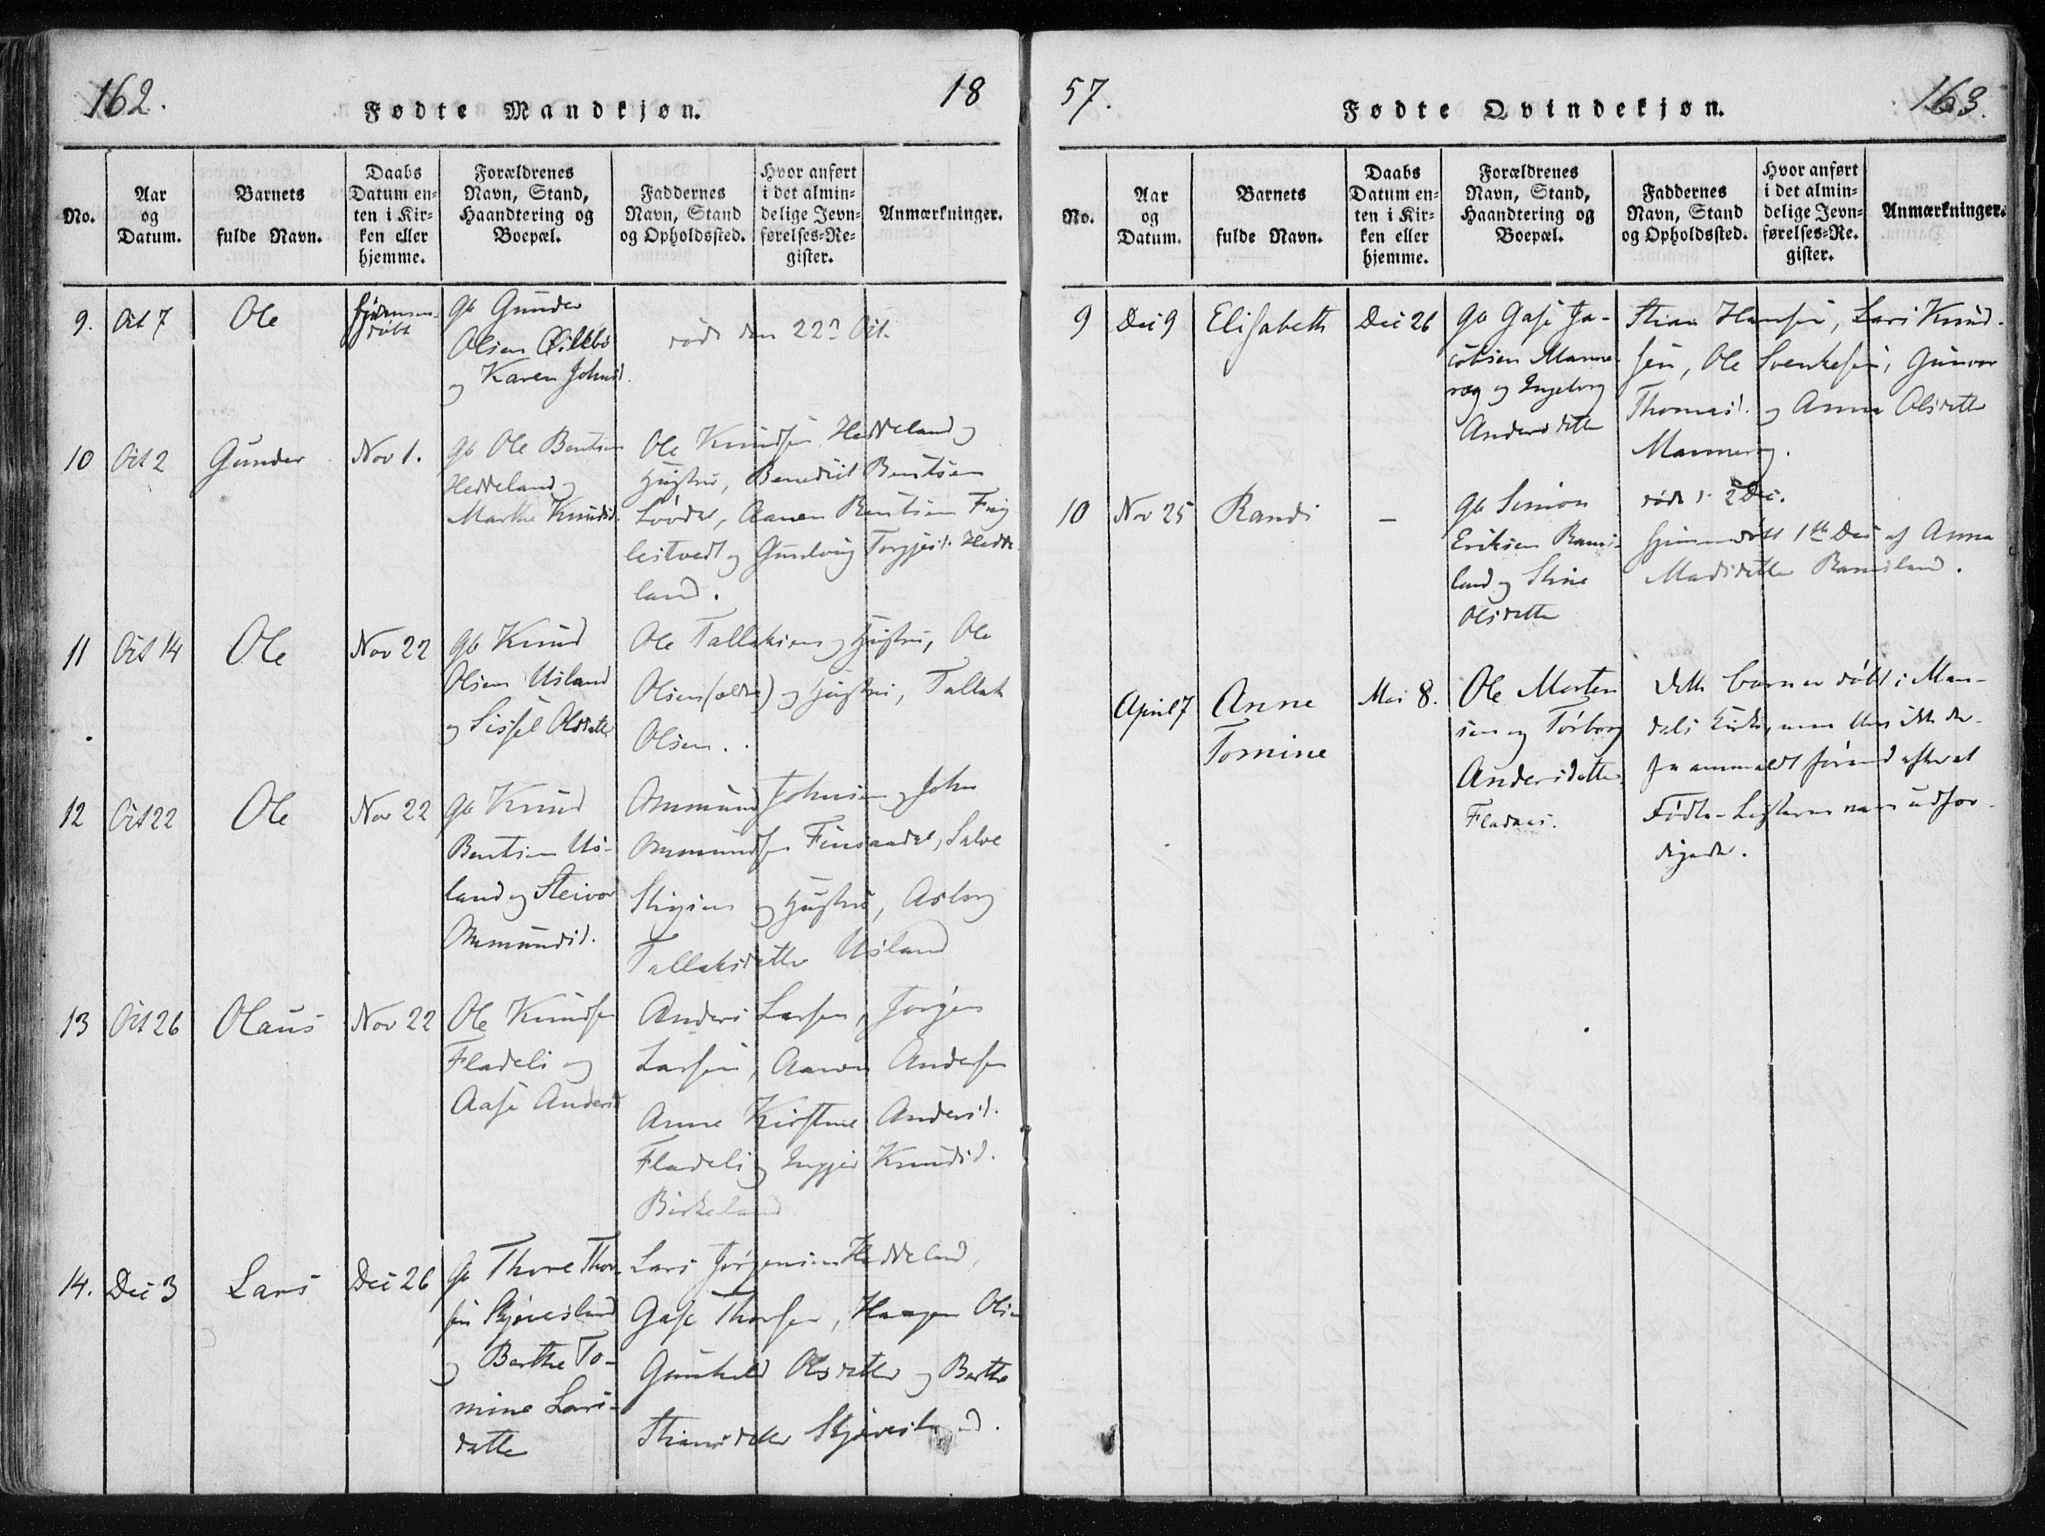 162.
Fødte Mandkjøn.
18
No.
Aar
og
Datum.
Barnets
fulde Navn.
Daabs
Datum en-
ten i Kir-
ken eller
hjemme.
Forældrenes
Navn, Stand,
Haandtering og
Boepæl.
Faddernes
Navn, Stand
og Opholdssted.
Hvor anført
i det almin-
delige Jevn-
førelses-Re-
gister.
Anmærkninger.
9.
Oct 7
Ole
hjemme-
døbt
Gb Gunder
Olsen
og Karen Johnsd.
død den 22 Oct.
10
Oct 2
Gunder
Nov 1.
Gb Ole Bentsen
Heddeland og
Marthe Knudsd.
Ole Knudsen Heddeland og
Hustru, Benedict Bentsen
Aanen Bentsen Fug
lestvedt og Gundvig Torgjesd. Hedde
land.
11
Oct 14
Ole
Nov 22
Gb Knud
Olsen Usland
og Sissel Olsdatter
Ole Tallaksen og Hustru, Ole
Olsen (ældre) og Hustru, Tallak
Olsen.
12
Oct 22
Ole
Nov 22
Gb Knud
Bentsen Us-
land og Steivor
Ommundsd.
Ommund Johnsen og John
Ommundsen Finsaadal, Salve
Stigsen og Hustru, Asborg
Tallaksdatter Usland
13
Oct 26
Olaus
Nov 22
Ole Knudsen
Fladeli og
Aase Andersd
Anders Larsen, Jørgen
Larsen, Aanen Andersen
Anne Kirstine Andersd.
Fladeli og Ingjer Knudsd.
Birkeland
14.
Dec 3
Lars
Dec 26
Gb Thore Thor-
sen Skjævesland
og Berthe To-
mine Lars-
datter
Lars Jørgensen Heddeland,
Gase Thorsen, Haagen Olsen
Gunhild Olsdatter og Berthe
Stiansdatter Skjævesland.
57.
Fødte Qvindekjøn.
163.
No.
Aar
og
Datum.
Barnets
fulde Navn.
Daabs
Datum en-
ten i Kir-
ken eller
hjemme.
Forældrenes
Navn, Stand,
Haandtering og
Boepæl.
Faddernes
Navn, Stand
og Opholdssted.
Hvor anført
i det almin-
delige Jevn-
førelses-Re-
gister.
Anmærkninger.
9
Dec 9
Elisabeth
Dec 26
Gb Gase Ja-
cobsen Manne-
ræg og Ingeborg
Andersdatter
Stian Hansen, Lars Knud-
sen, Ole Svenkesen, Gunvor
Thomasd. og Anna Olsdatter
Manneræg.
10
Nov 25
Randi
–
Gb Simon
Eriksen Rams-
land og Stine
Olsdatter
død d. 2 Dec.
hjemmedøbt 1ste Dec af Anna
Madsdatter Ramsland.
April 7
Anne
Tomine
Mai 8.
Ole Morten
sen og Torborg
Andersdatter
Fladnes.
Dette Barn er døbt i Man-
dals Kirke, men blev ikke der-
fra anmeldt førend efterat
Fødte-Listerne vare udfær-
digede.